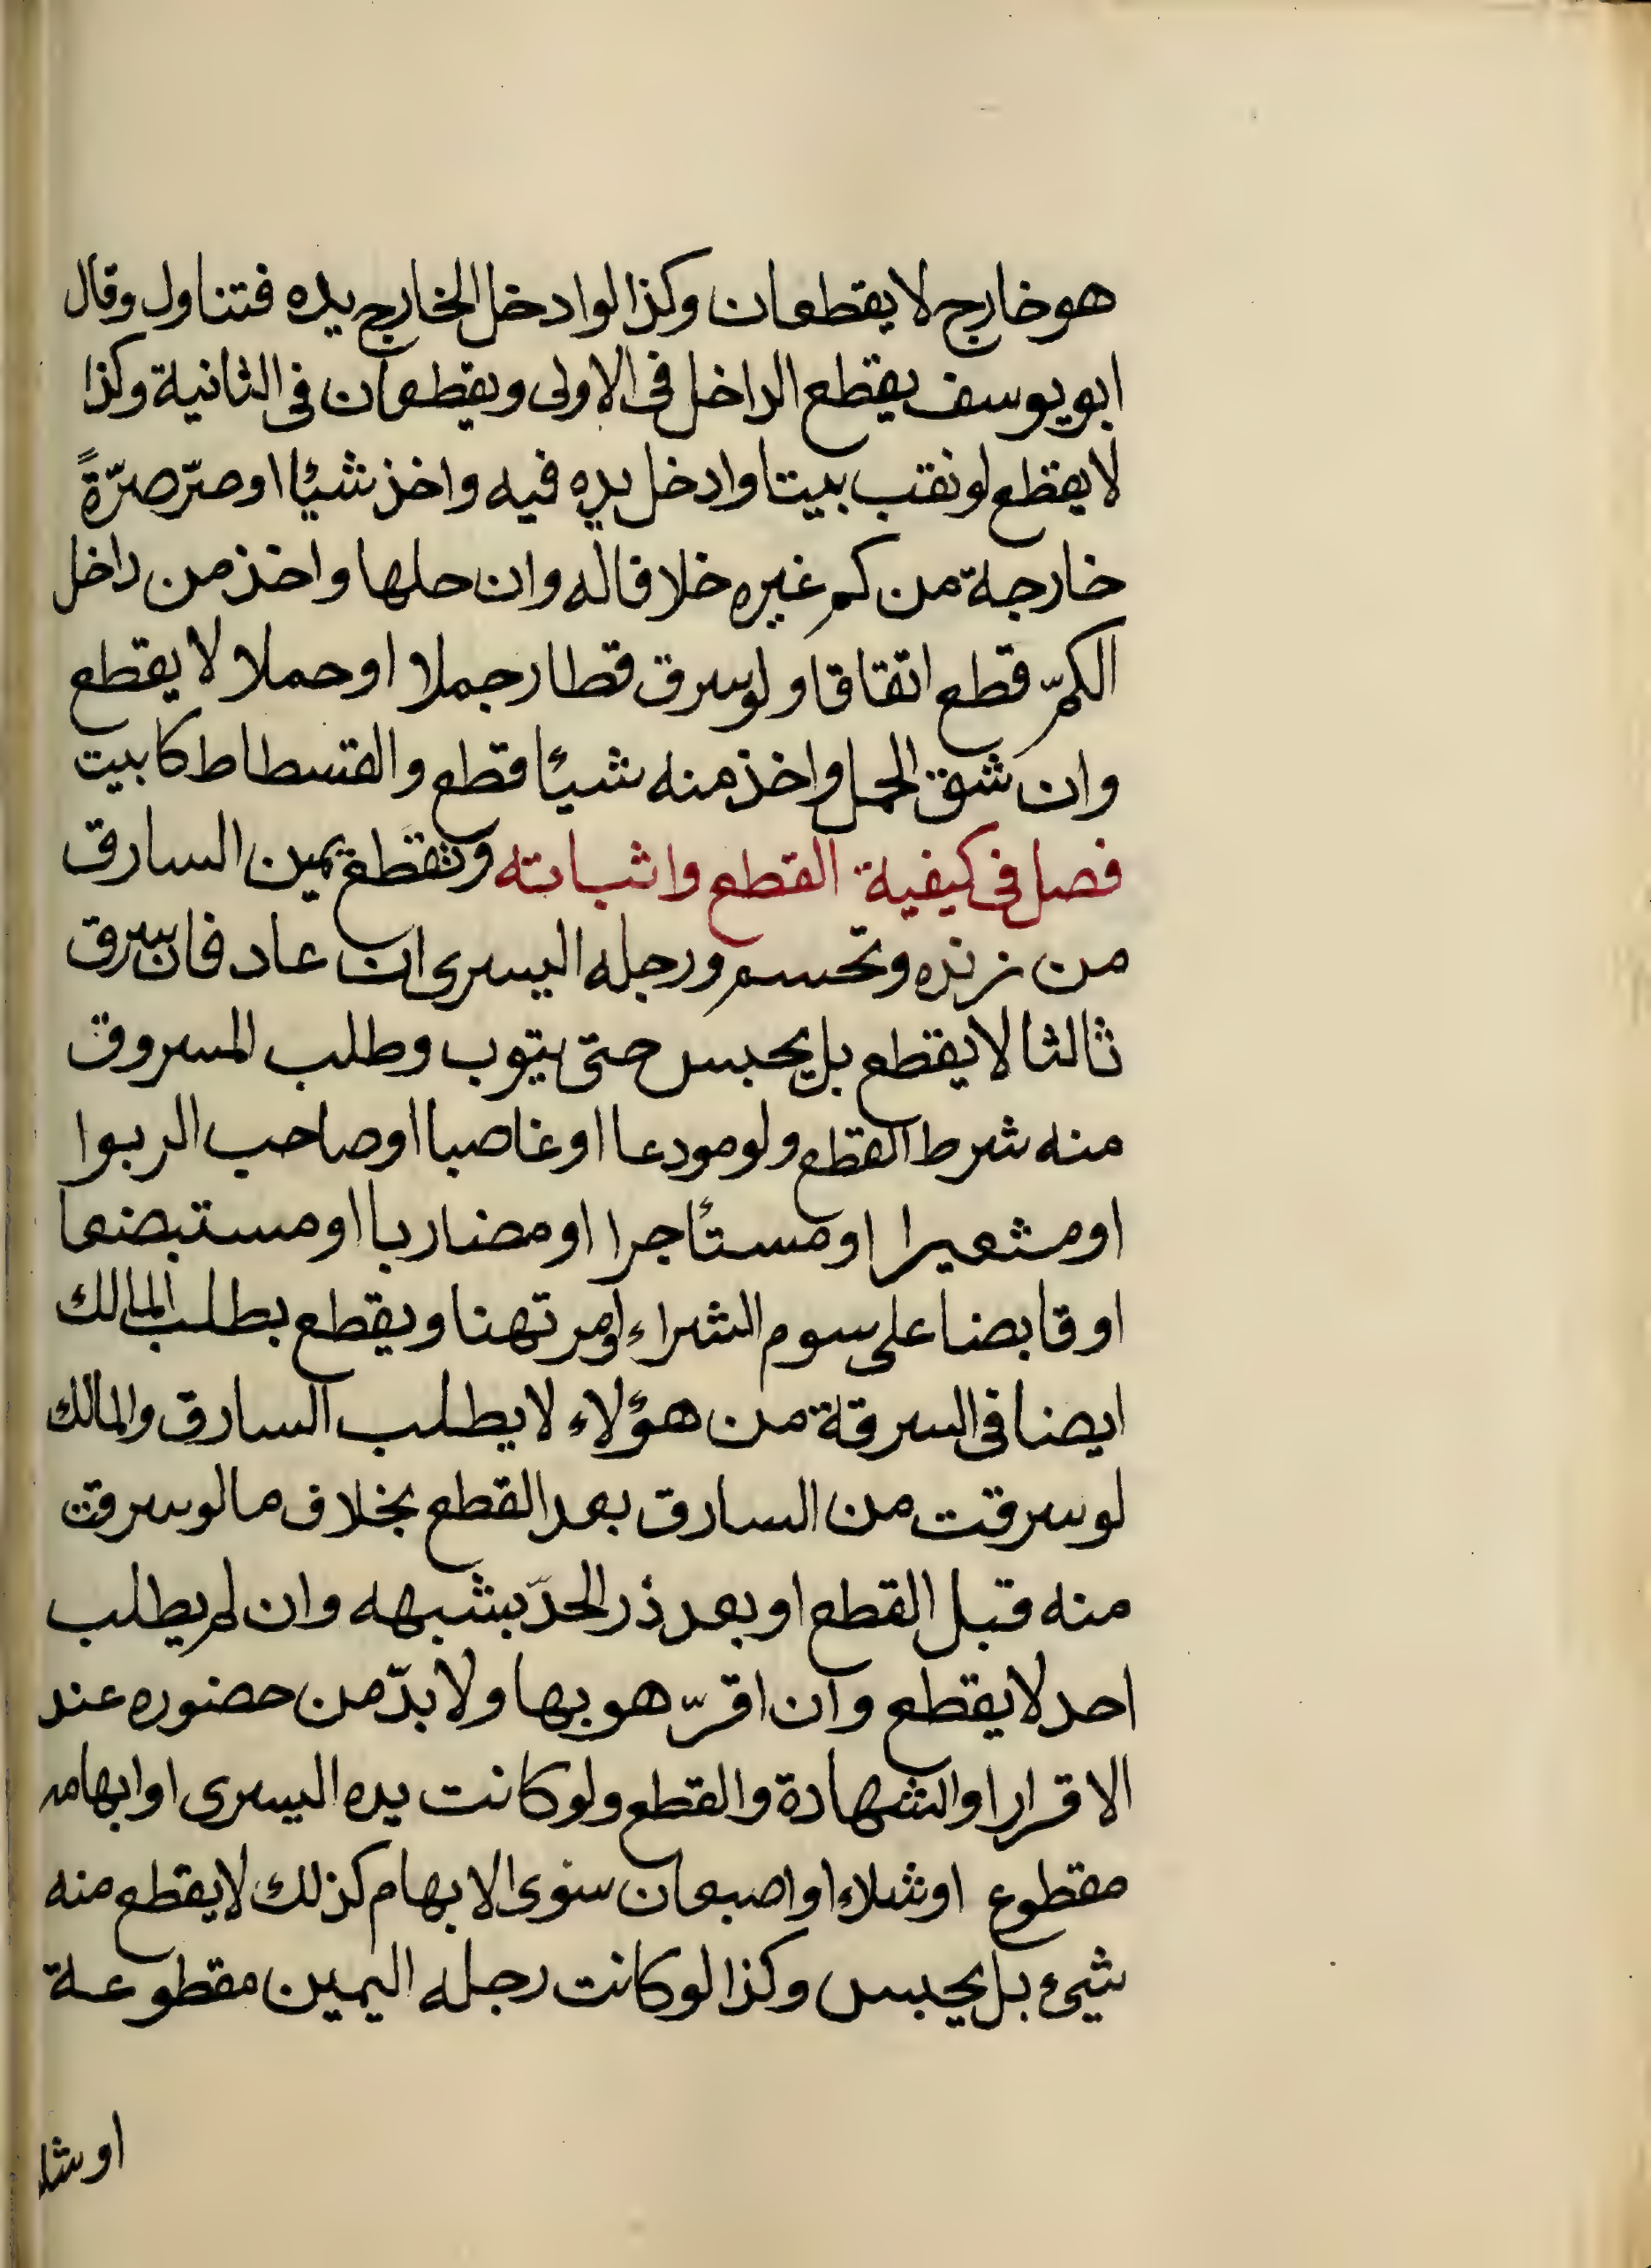 هو خارج لا يقطعان وكذا لو ادخل الخارج يده فتناول وقال
ابو يوسف يقطع الداخل فى الاولى ويقطعان فى الثانية وكذا
لا يقطع لو نقب بيتا وادخل يده فيه واخذ شيئا او صرّ صرّةً
خارجة من كم غيره خلافا له وان حلها واخذ من داخل
الكمّ قطع اتفاقا ولو سرق قطار جملا او حملا لا يقطع
وان شق الحمل واخذ منه شيئا قطع والفسطاط كابيت
فصل فى كيفية القطع واثباته وتقطع يمين السارق
من زنده وتحسم ورجله اليسرى ان عاد فان سرق
ثالثا لا يقطع بل يحبس حتى يتوب وطلب المسروق
منه شرط القطع ولو مودعا او غاصبا او صاحب الربوا
او مشعيرا او مستأجرا او مضاربا او مستبضعا
او قابضا على سوم الشراء او مرتهنا ويقطع بطلب المالك
ايضا فى السرقة من هؤلاء لا يطلب السارق والمالك
لو سرقت من السارق بعد القطع بخلاف ما لو سرقت
منه قبل القطع او بعد ذر الحدّ بشبهه وان لم يطلب
احد لا يقطع وان اقرّ هو بها ولا بدّ من حضوره عند
الاقرار او الشهادة والقطع ولو كانت يده اليسرى او ابهامه
مقطوع او شلاء او اصبعان سوى الابهام كذلك لا يقطع منه
شيئ بل يحبس وكذا لو كانت رجله اليمين مقطوعة
او شلا